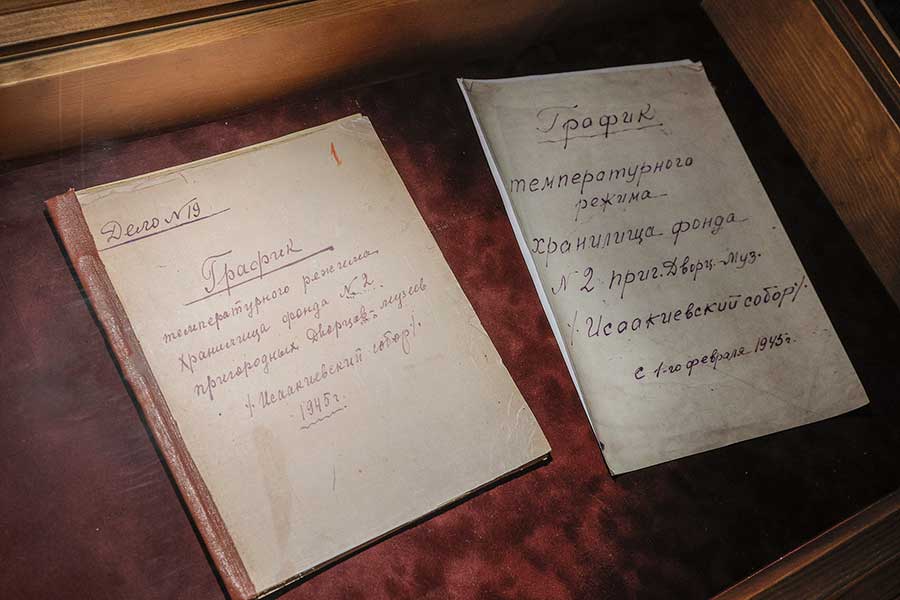 1
Дело N 19
График
температурного режима
Хранилища фонда N 2
пригородных Дворцов-музеев
/. Исаакиевский собор/.
1945 г.
График
температурного
режима
хранилища фонда
N 2 приг. Дворц. Муз.
/. Исаакиевский собор/.
с 1-го февраля 1945 г.